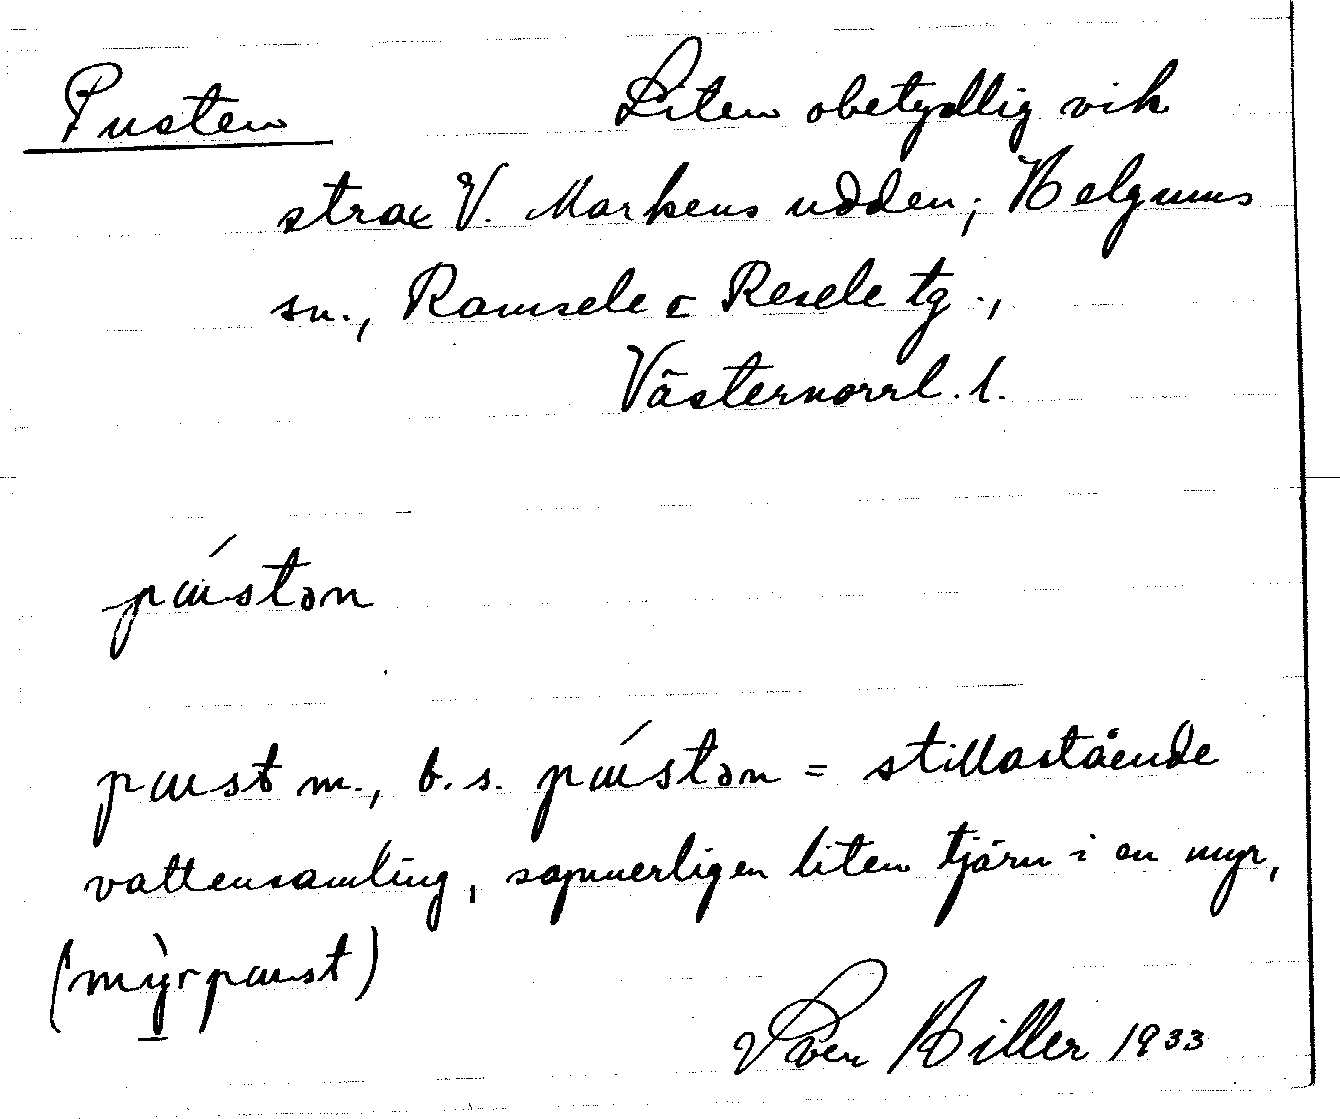 Pusten Liten obetydlig vik
strax V. Markens udden; Helgums
sn., Ramsele o Resele tg.,
Västernorrl. l.
pɯ́stən
pɯst m., b. s. pɯ́stən = stillastående
vattensamling, synnerligen liten tjärn i en myr,
(mỳrpɯst)
Sven Hiller 1933